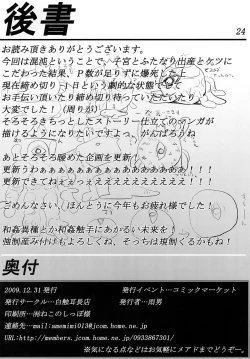 後書
24
お読み頂きありがとうございます。
今回は混沌ということで、子宮とふたなり出産とケツに
こだわった結果、P数が足りずに爆死した上
現在締め切り-1日という劇的な状態でして
お手伝い頂いたり締め切り待っていただいたり、
大変でした!(周りが)
そろそろきちっとしたストーリー仕立てのマンガが
描けるようになりたいですよっ、がんばろうね
あとそろそろ暖めた企画を更新!
更新うわぁぁぁぁぁぁぁぁぁぁ!!!
更新できてねぇっぇぇぇぇぇぇぇぇぇぇ!!!
ごめんなさい、ほんとうに今年もお疲れ様でした!
和姦異種とか和姦触手にあかるい未来を!
強制産み付けもよろしくね、そっちは規制くるかもね!
奥付
2009.12.31発行
発行イベント…コミックマーケット
発行サークル…白触耳長店
発行者…雨男
印刷所…㈲ねこのしっぽ様
連絡先…mail:amemimi013@jcom.home.ne.jp
URL:http://members.jcom.home.ne.jp/0933867301/
※気になる点などはお気軽にメアドまでどうぞー